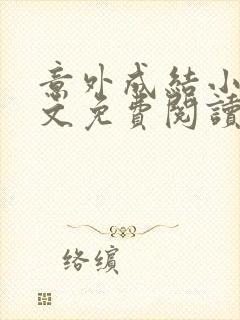 意外成結小
文免費閱讀
絡繽